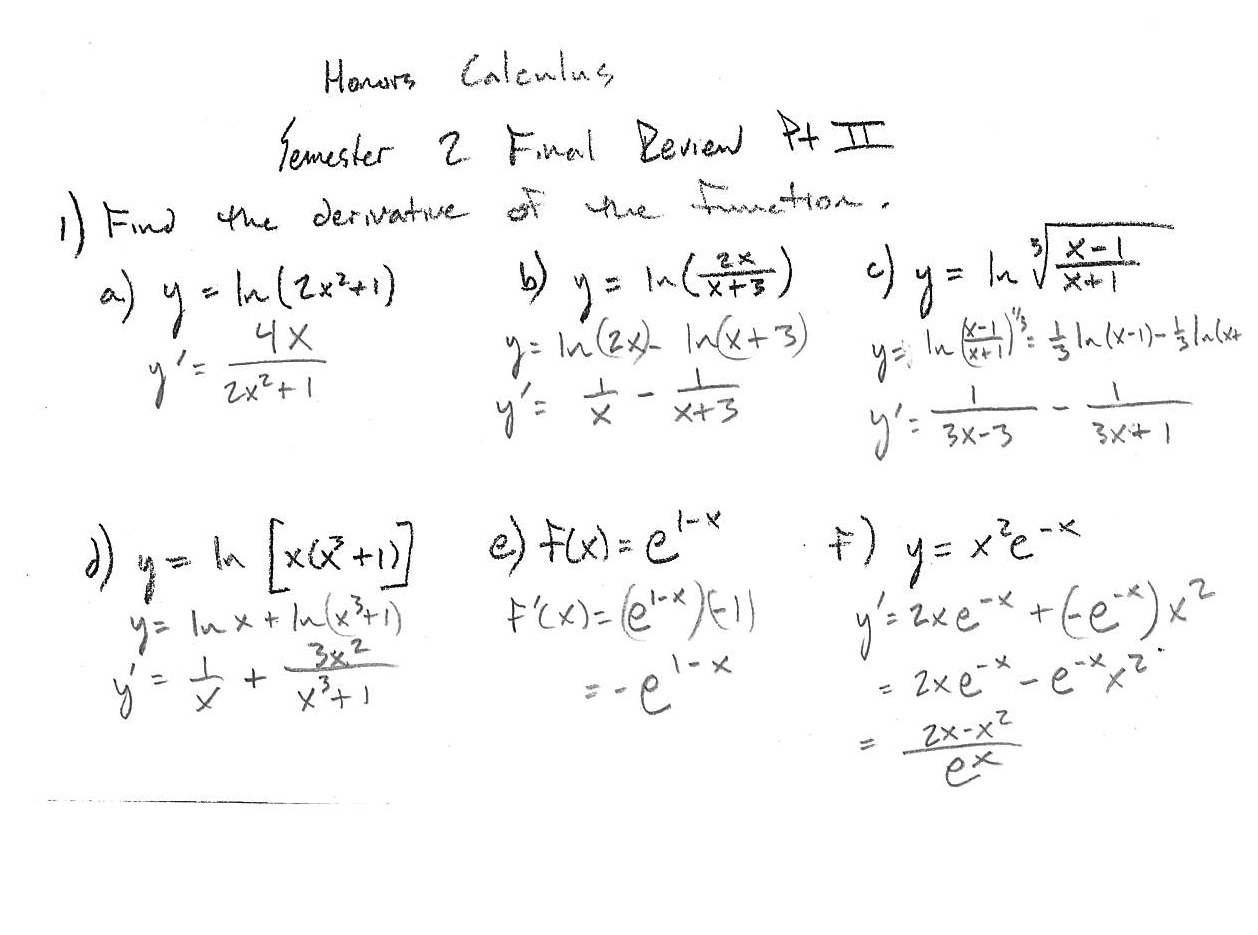 Honors Calculus
Semester 2 Final Review Pt II
1) Find the derivative of the function.
a) y = ln(2x²+1)
y' = 4x / (2x²+1)
b) y = ln(2x / (x+3))
y = ln(2x) - ln(x+3)
y' = 1/x - 1/(x+3)
c) y = ln ∛((x-1)/(x+1))
y = ln((x-1)/(x+1))^(1/3) = 1/3 ln(x-1) - 1/3 ln(x+
y' = 1/(3x-3) - 1/(3x+1)
d) y = ln [x(x³+1)]
y = ln x + ln(x³+1)
y' = 1/x + 3x²/(x³+1)
e) f(x) = e^(1-x)
f'(x) = (e^(1-x))(-1)
= -e^(1-x)
f) y = x²e^(-x)
y' = 2xe^(-x) + (-e^(-x))x²
= 2xe^(-x) - e^(-x)x²
= (2x-x²)/e^x